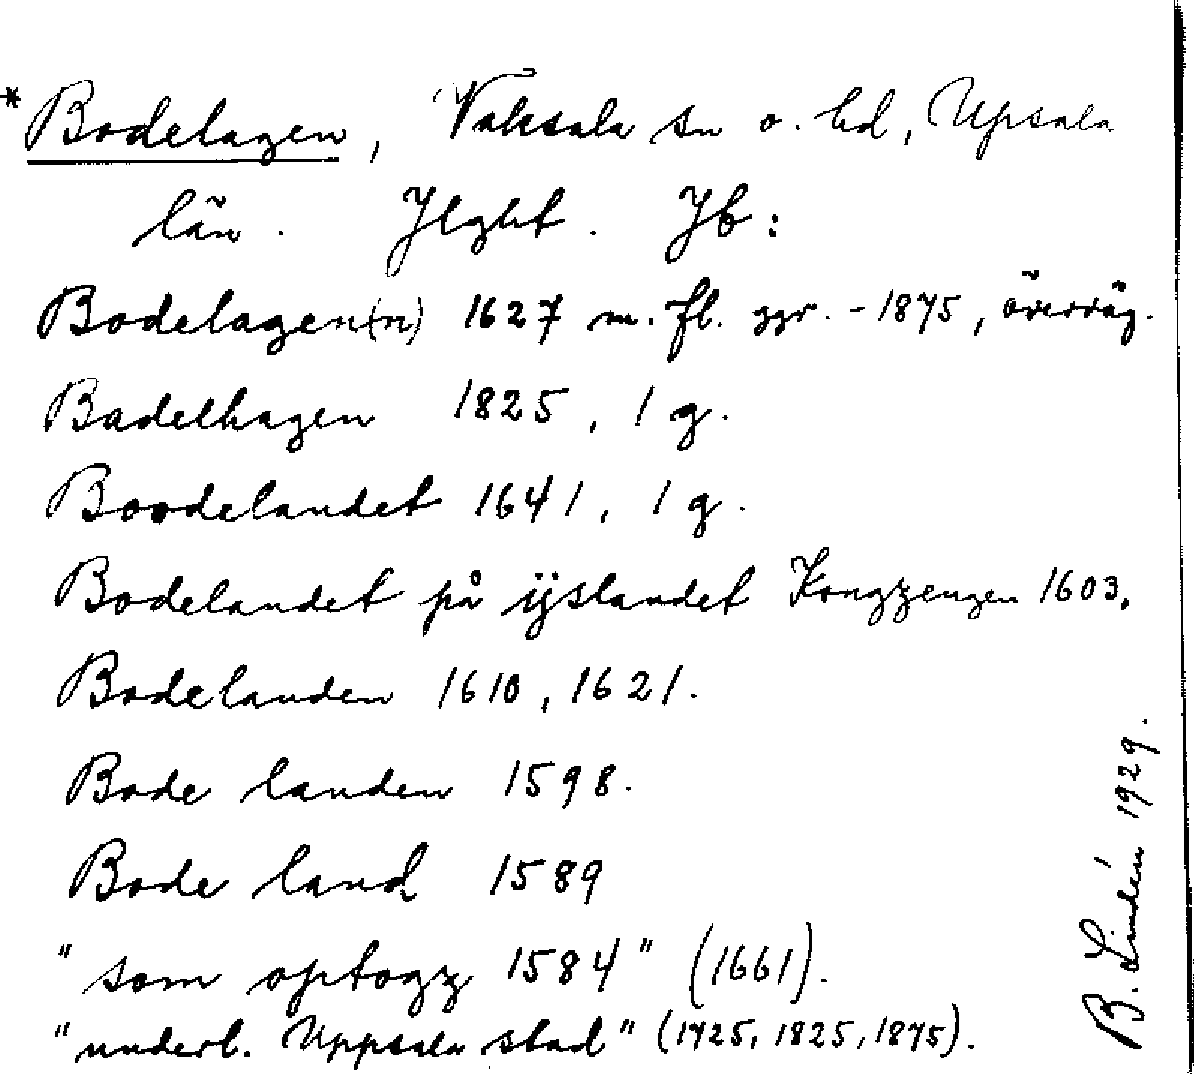 *Bodelagen, Vaksala sn o. hd, Upsala
län. Jlght. Jb:
Bodelagen(n) 1627 m. fl. ggr. - 1875, överväg.
Badelhagen 1825, 1 g.
Boodelandet 1641, 1 g.
Bodelandet på ÿslandet Kongzengen 1603.
Bodelanden 1610, 1621.
Bode landen 1598.
Bode land 1589
"som optogz 1584" (1661).
"underl. Uppsala stad" (1725, 1825, 1875).
B. Lindén 1929.